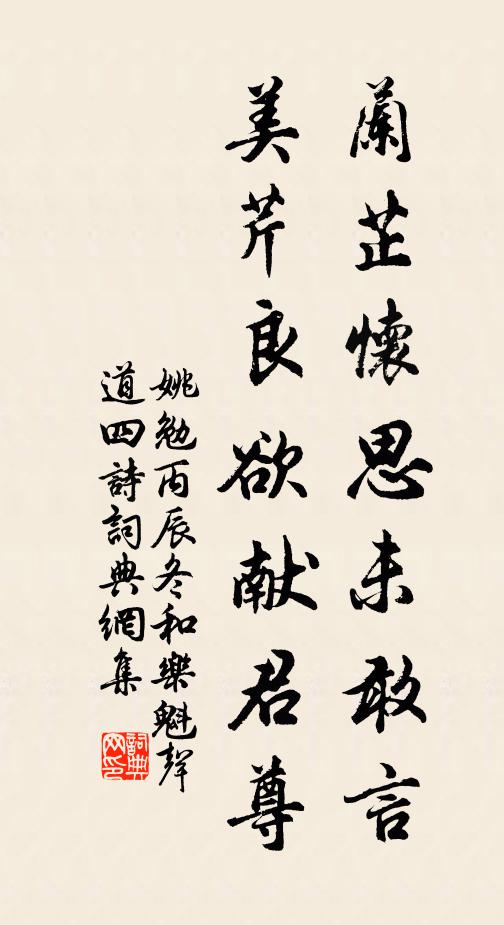 蘭芷懷思未敢言
美芹良欲献君尊
姚勉丙辰冬和樂魁聲
道四詩詞典網集
詞典网印